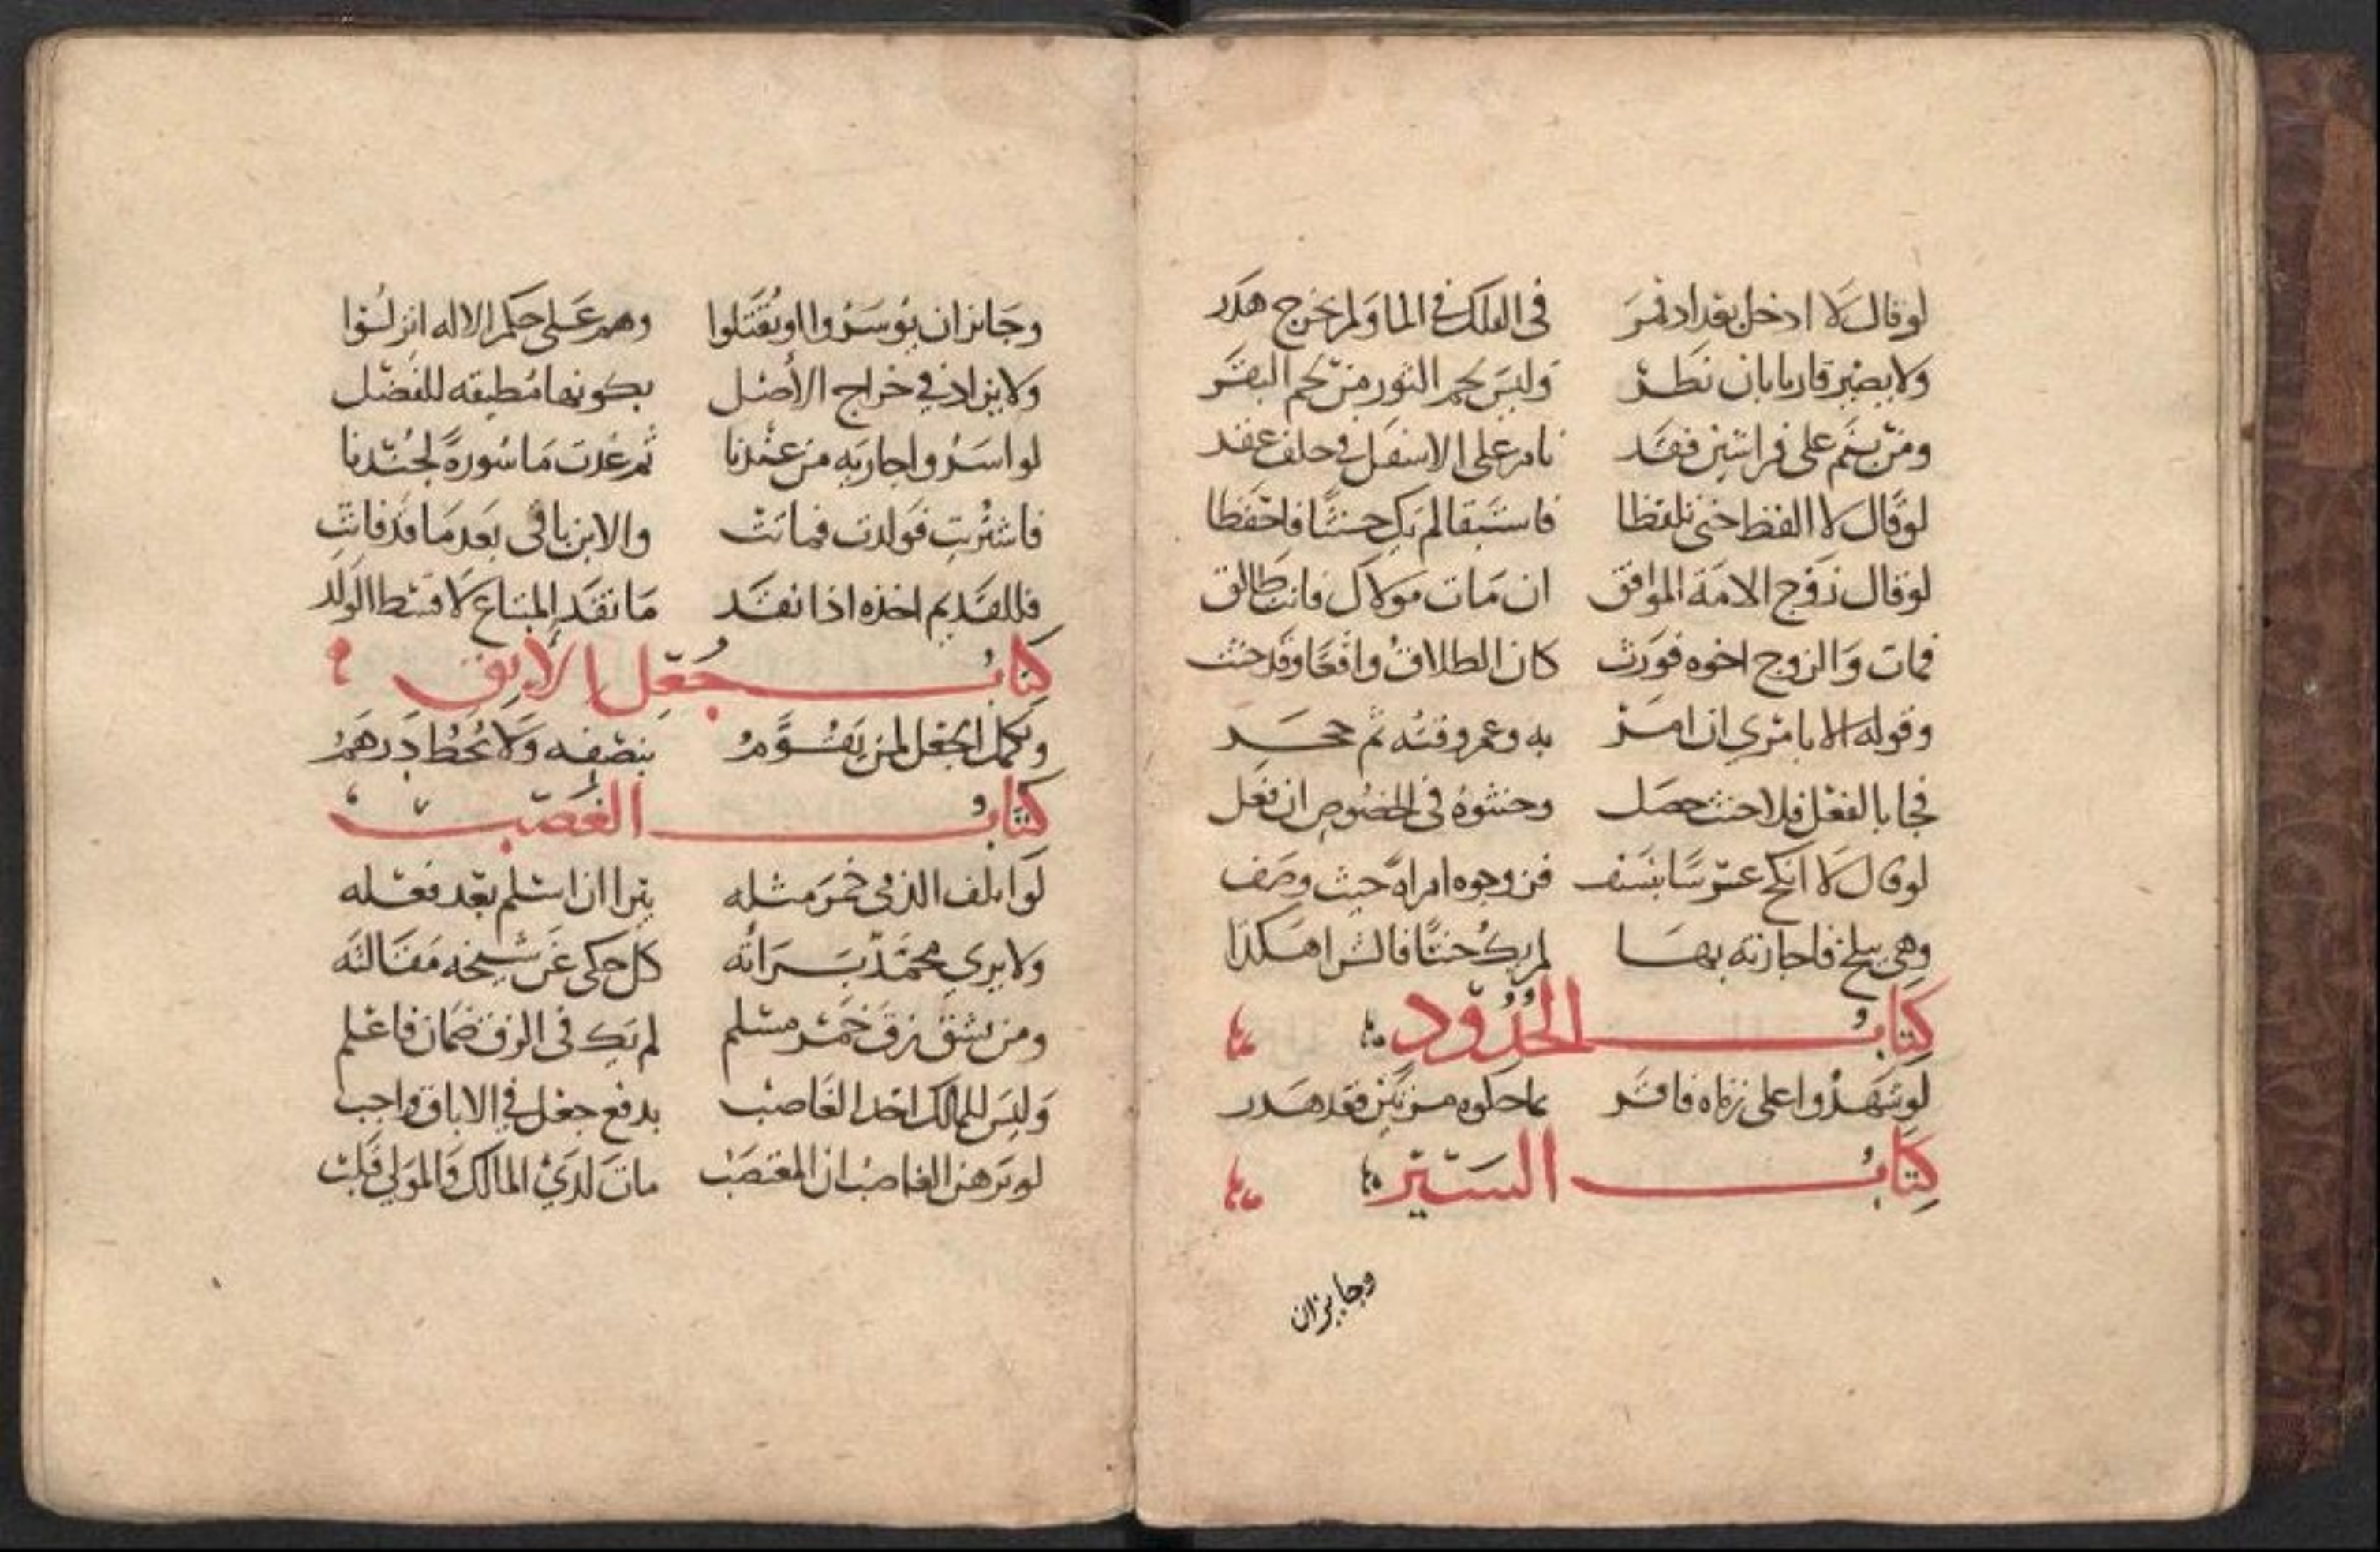 لو قال لا ادخل بغداد فمر في الفلك في الما ولم يخرج هدر
ولا يصير قاريا بان نظر وليس لحم الثور من لحم البقر
ومن ينم على فراشين فقد نام على الاسفل في حلف عقد
لو قال لا الفظ حتى تلفظا فاستبقا لم يك حنثا فاحفظا
لو قال زوج الامة الموافق ان مات مولاك فانت طالق
فمات والزوج اخوه فورث كان الطلاق واقعا وقد حنث
وقوله الا بامري ان امر به وعمرو فته ثم حجر
فجا بالفعل فلا حنث حصل وحنثوه في الخصوص ان فعل
لو قال لا انكح عرسا بنسف فزوجوه امراة حيث وصف
وهي ببلخ فاجازته بها لم يك حنثا فالشرا هكذا
كتاب الحدود
لو شهدوا على زناه فاقر بما حكوه من يكن فقد هدر
كتاب السير
وجايزان
وجايز ان يوسروا او يقتلوا وهم على حكم الاله انزلوا
ولا يزاد في خراج الأصل بكونها مطيقه للفضل
لو اسروا جاريه من عندنا ثم غدت ماسورة لجندنا
فاشتريت فولدت فماتت والابن باقي بعد ما قد فاتت
فللقديم اخذه اذا نقد ما نقد المبتاع لا قسط الولد
كتاب جعل الابق
وتكمل الجعل لمن يقوم بنصفه ولا يحط درهم
كتاب الغصب
لو اتلف الذمي خمر مثله يبرا ان اسلم بعد فعله
ولا يرى محمد براته كل حكى عن شيخه مقالته
ومن يشق زق خمر مسلم لم يك في الزق ضمان فاعلم
وليس للمالك اخذ الغاصب بدفع جعل في الاباق واجب
لو يرهن الغاصب ان المغتصب مات لدي المالك والمولى قلب